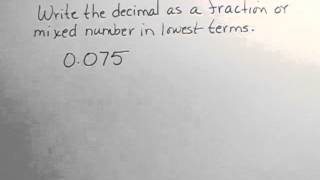 Write the decimal as a fraction or
mixed number in lowest terms.
0.075